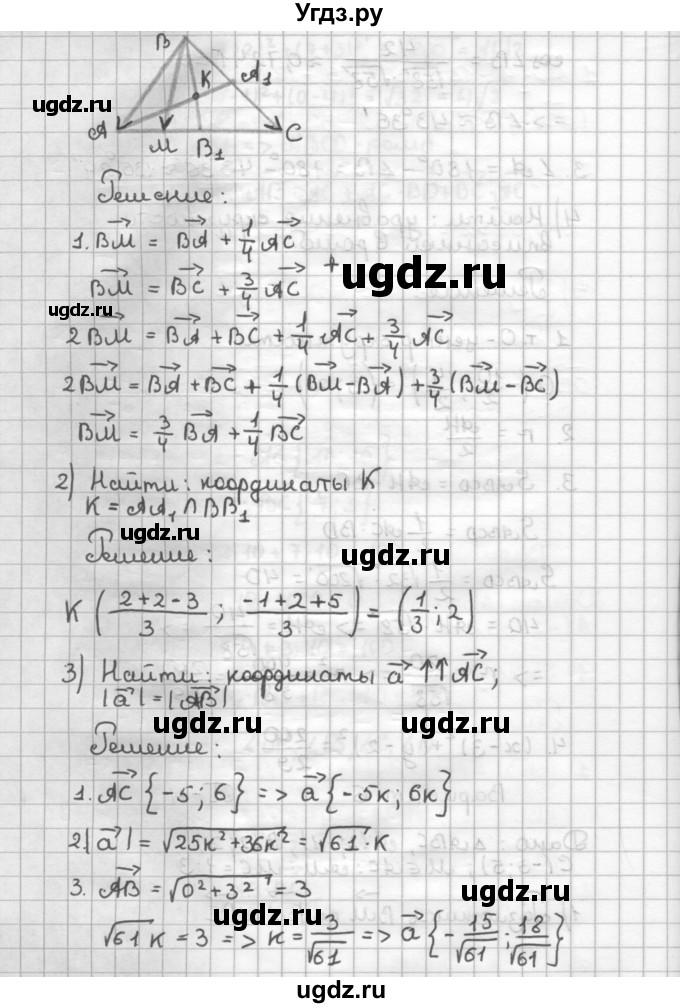 Угдз.ру
B
K
A₁
ugdz.ru
ugdz.ru
A
M
B₁
C
Решение:
1. BM⃗ = BA⃗ + 1/4 AC⃗
+
BM⃗ = BC⃗ + 3/4 AC⃗
ugdz.ru
ugdz.ru
2BM⃗ = BA⃗ + BC⃗ + 1/4 AC⃗ + 3/4 AC⃗
2BM⃗ = BA⃗ + BC⃗ + 1/4 (BM⃗ − BA⃗) + 3/4 (BM⃗ − BC⃗)
BM⃗ = 3/4 BA⃗ + 1/4 BC⃗
ugdz.ru
2) Найти: координаты K
K = AA₁ ∩ BB₁
ugdz.ru
ugdz.ru
Решение:
K ((2+2−3)/3 ; (−1+2+5)/3) = (1/3 ; 2)
ugdz.ru
ugdz.ru
3) Найти: координаты a⃗ ↑↑ AC⃗;
|a⃗| = |AB⃗|
ugdz.ru
ugdz.ru
Решение:
1. AC⃗ {−5; 6} => a⃗ {−5к; 6к}
ugdz.ru
2. |a⃗| = √(25к² + 36к²) = √61 · к
3. AB⃗ = √(0² + 3²) = 3
ugdz.ru
ugdz.ru
√61 к = 3 => к = 3/√61 => a⃗ {−15/√61 ; 18/√61}
ugdz.ru